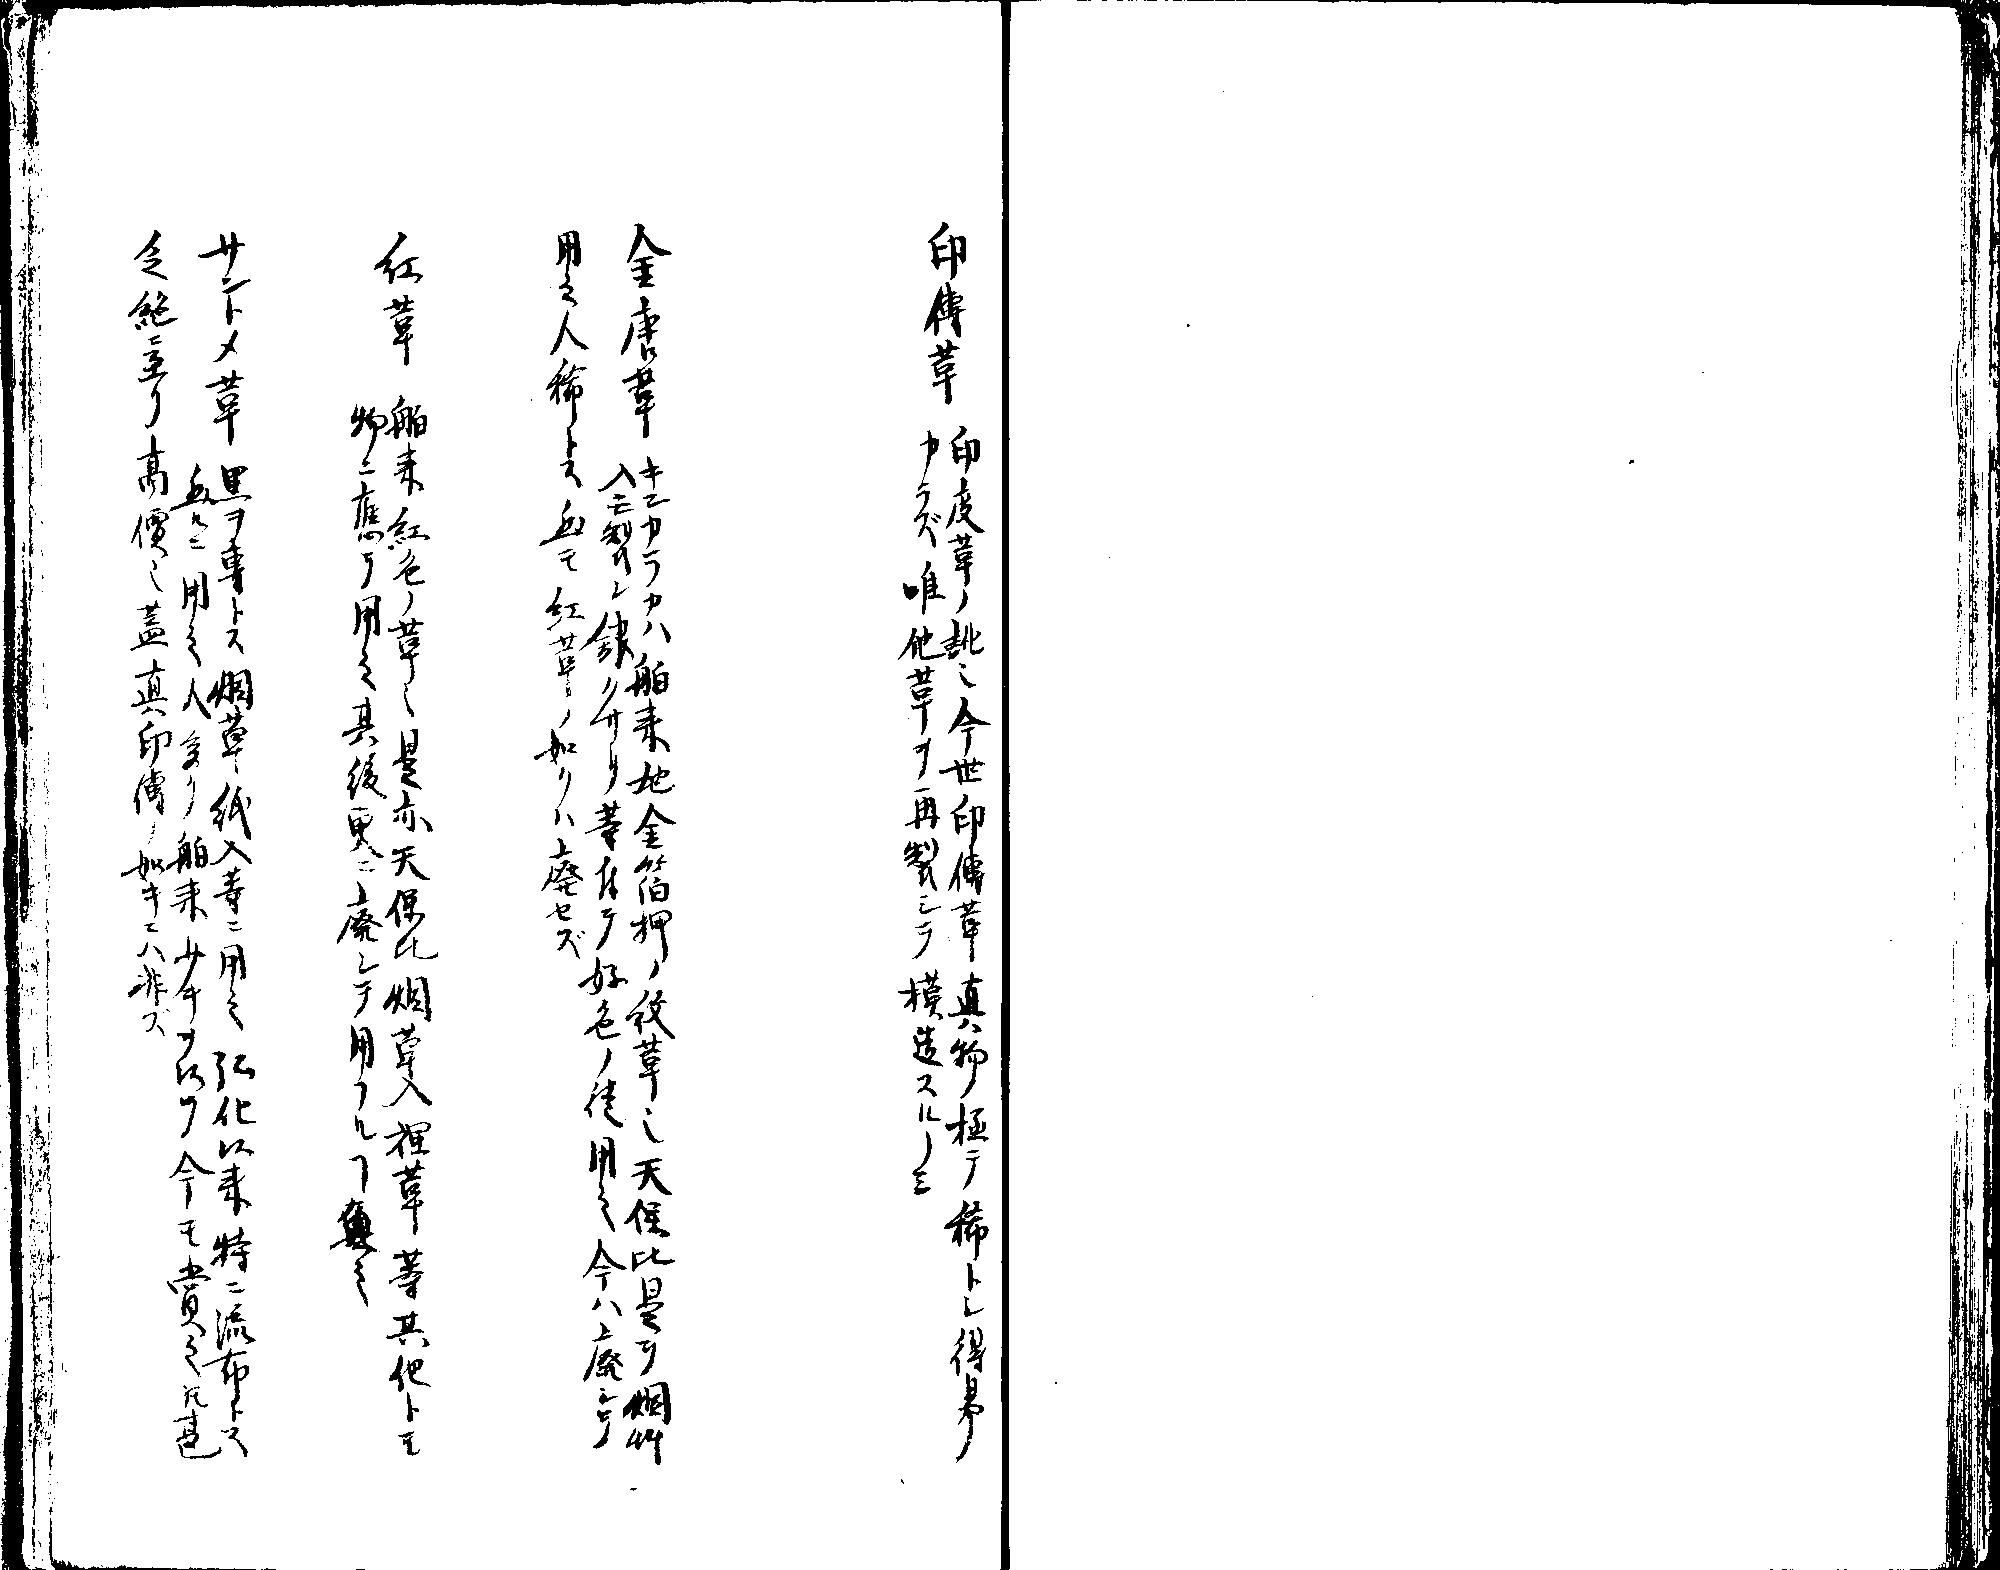 印傳革 印度革ノ訛也今世印傳革真物極テ稀トシ得易
カラズ唯他革ヲ再製シテ模造スルノミ
金唐革 キンカラカハ舶来地金箔押ノ紋革也天保比是ヲ烟艸
入ニ製シ銀クサリ等付テ好色ノ徒用之今ハ廃シテ
用之人稀トス然モ紅革ノ如クハ廃セズ
紅革 舶来紅色ノ革也是亦天保比烟草入裡革等其他トモ
物ニ應テ用之其後更ニ廃シテ用フルヿ無之
サントメ革 黒ヲ専トス烟草紙入等ニ用之弘化以来特ニ流布トス
然ルニ用之人多ク舶来少キヲ以テ今モ賞之ドモ甚
乏絶ニ至リ高價也蓋真印傳ノ如キニハ非ズ